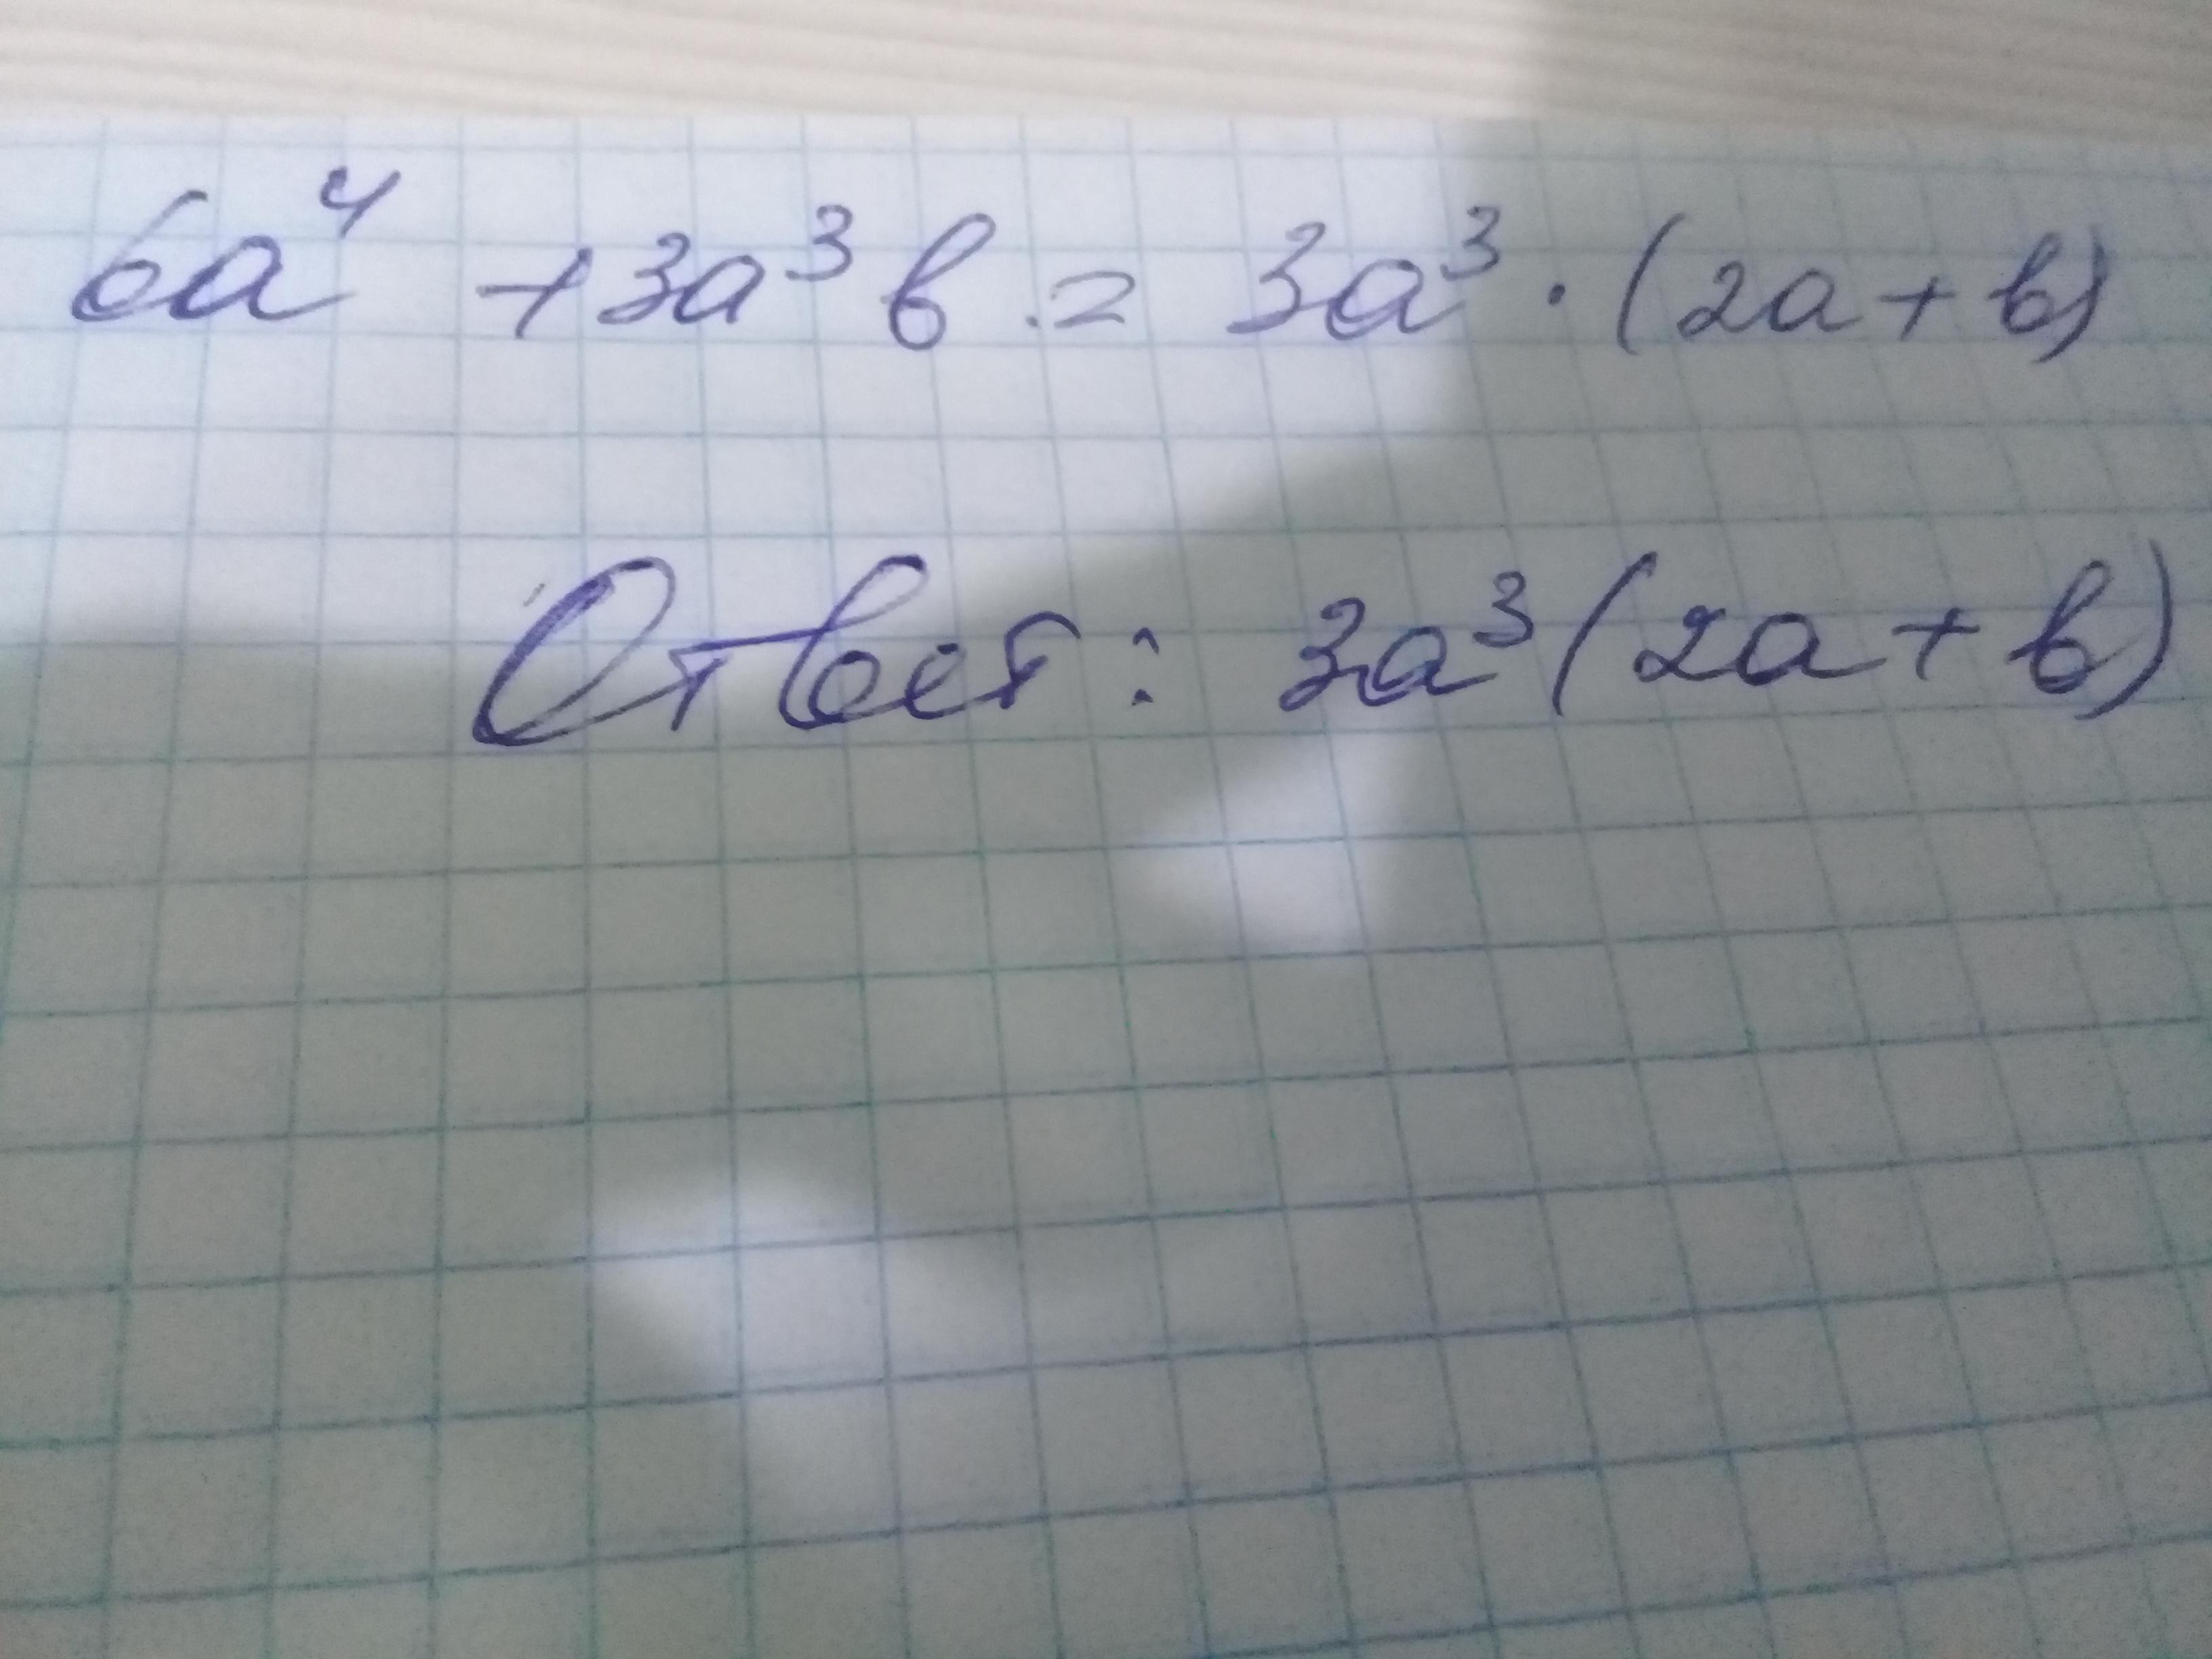 6a⁴ + 3a³b = 3a³ · (2a + b)
Ответ: 3a³(2a + b)